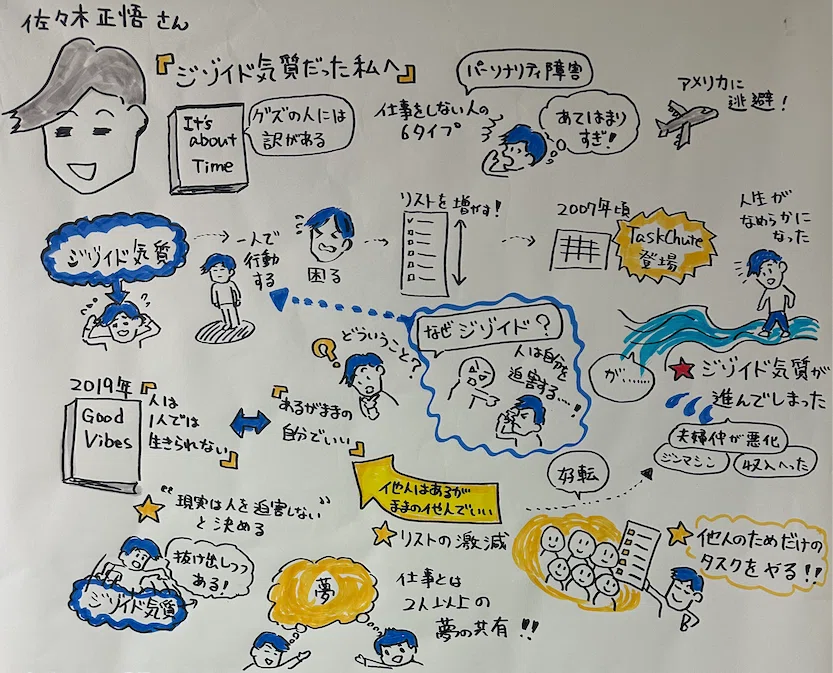 佐々木正悟さん
『ジゾイド気質だった私へ』
It's
about
Time
グズの人には
訳がある
パーソナリティ障害
仕事をしない人の
6タイプ
あてはまり
すぎ!
アメリカに
逃避!
ジゾイド気質
一人で
行動
する
困る
リストを増やす!
2007年頃
TaskChute
登場
人生が
なめらかに
なった
なぜジゾイド?
人は自分を
迫害する…!
どういうこと?
が……
ジゾイド気質が
進んでしまった
夫婦仲が悪化
ジンマシン
収入へった
2019年
Good
Vibes
『人は
1人では
生きられない』
『あるがままの
自分でいい』
他人はあるが
ままの他人でいい
好転
"現実は人を迫害しない"
と決める
抜け出しつつ
ある!
ジゾイド気質
リストの激減
夢
仕事とは
2人以上の
夢の共有!!
他人のためだけの
タスクをやる!!